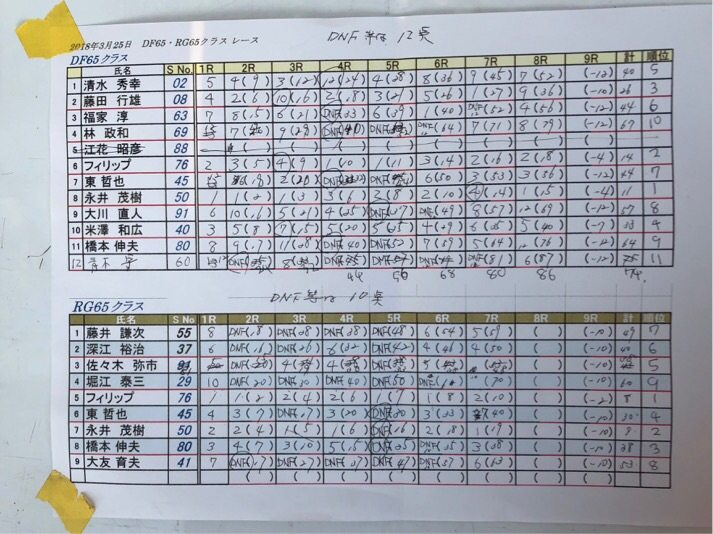 2018年3月25日 DF65・RG65クラス レース DNF 等は 12点
DF65クラス
氏名 S No. 1R 2R 3R 4R 5R 6R 7R 8R 9R 計 順位
1 清水 秀幸 02 5 4(9) 3(12) 12(24) 4(28) 8(36) 9(45) 7(52) (-12) 40 5
2 藤田 行雄 08 4 2(6) 10(16) 2(18) 3(21) 5(26) 1(27) 9(36) (-10) 26 3
3 福家 淳 63 7 8(15) 6(21) DNF(33) 6(39) 1(40) DNF(52) 4(56) (-12) 44 6
4 林 政和 69 7 9 DNF DNF DNF(64) 7(71) 8(79) (-12) 67 10
5 江花 昭彦 88
6 フィリップ 76 2 3(5) 4(9) 1(10) 1(11) 3(14) 2(16) 2(18) (-4) 14 2
7 東 哲也 45 DNF DNF 6(50) 3(53) 3(56) (-12) 44 7
8 永井 茂樹 50 1 1(2) 1(3) 3(6) 2(8) 2(10) 4(14) 1(15) (-4) 11 1
9 大川 直人 91 6 10(16) 5(21) 4(25) DNF(37) DNF(49) 8(57) 12(69) (-12) 57 8
10 米澤 和広 40 3 5(8) 7(15) 5(20) 5(25) 4(29) 6(35) 5(40) (-7) 33 4
11 橋本 伸夫 80 8 9(17) 11(28) DNF(40) DNF(52) 7(59) 5(64) 12(76) (-12) 64 9
12 青木 60 DNF DNF DNF DNF DNF(81) 6(87) (-12) 11
44 56 68 80 86 74
RG65クラス DNF 等は 10点
氏名 S No 1R 2R 3R 4R 5R 6R 7R 8R 9R 計 順位
1 藤井 謙次 55 8 DNF(18) DNF(28) DNF(38) DNF(48) 6(54) 5(59) ( ) (-10) 49 7
2 深江 裕治 37 6 DNF(16) DNF(26) 6(32) DNF(42) 4(46) 4(50) ( ) (-10) 40 6
3 佐々木 弥市 DNF 4 4 DNF ( ) (-10) 5
4 堀江 泰三 29 10 DNF(20) DNF(30) DNF(40) DNF(50) DNF (70) ( ) (-10) 60 9
5 フィリップ 76 1 1(2) 2(4) 2(6) 1(7) 1(8) 2(10) ( ) (-2) 8 1
6 東 哲也 45 4 3(7) DNF(17) 3(20) DNF(30) 3(33) 7(40) ( ) (-10) 30 4
7 永井 茂樹 50 2 2(4) 1(5) 1(6) DNF(16) 2(18) 1(19) ( ) (-10) 9 2
8 橋本 伸夫 80 3 4(7) 3(10) 5(15) DNF(25) DNF(35) 3(38) ( ) (-10) 28 3
9 大友 育夫 41 7 DNF(17) DNF(27) DNF(37) DNF(47) DNF(57) 6(63) ( ) (-10) 53 8